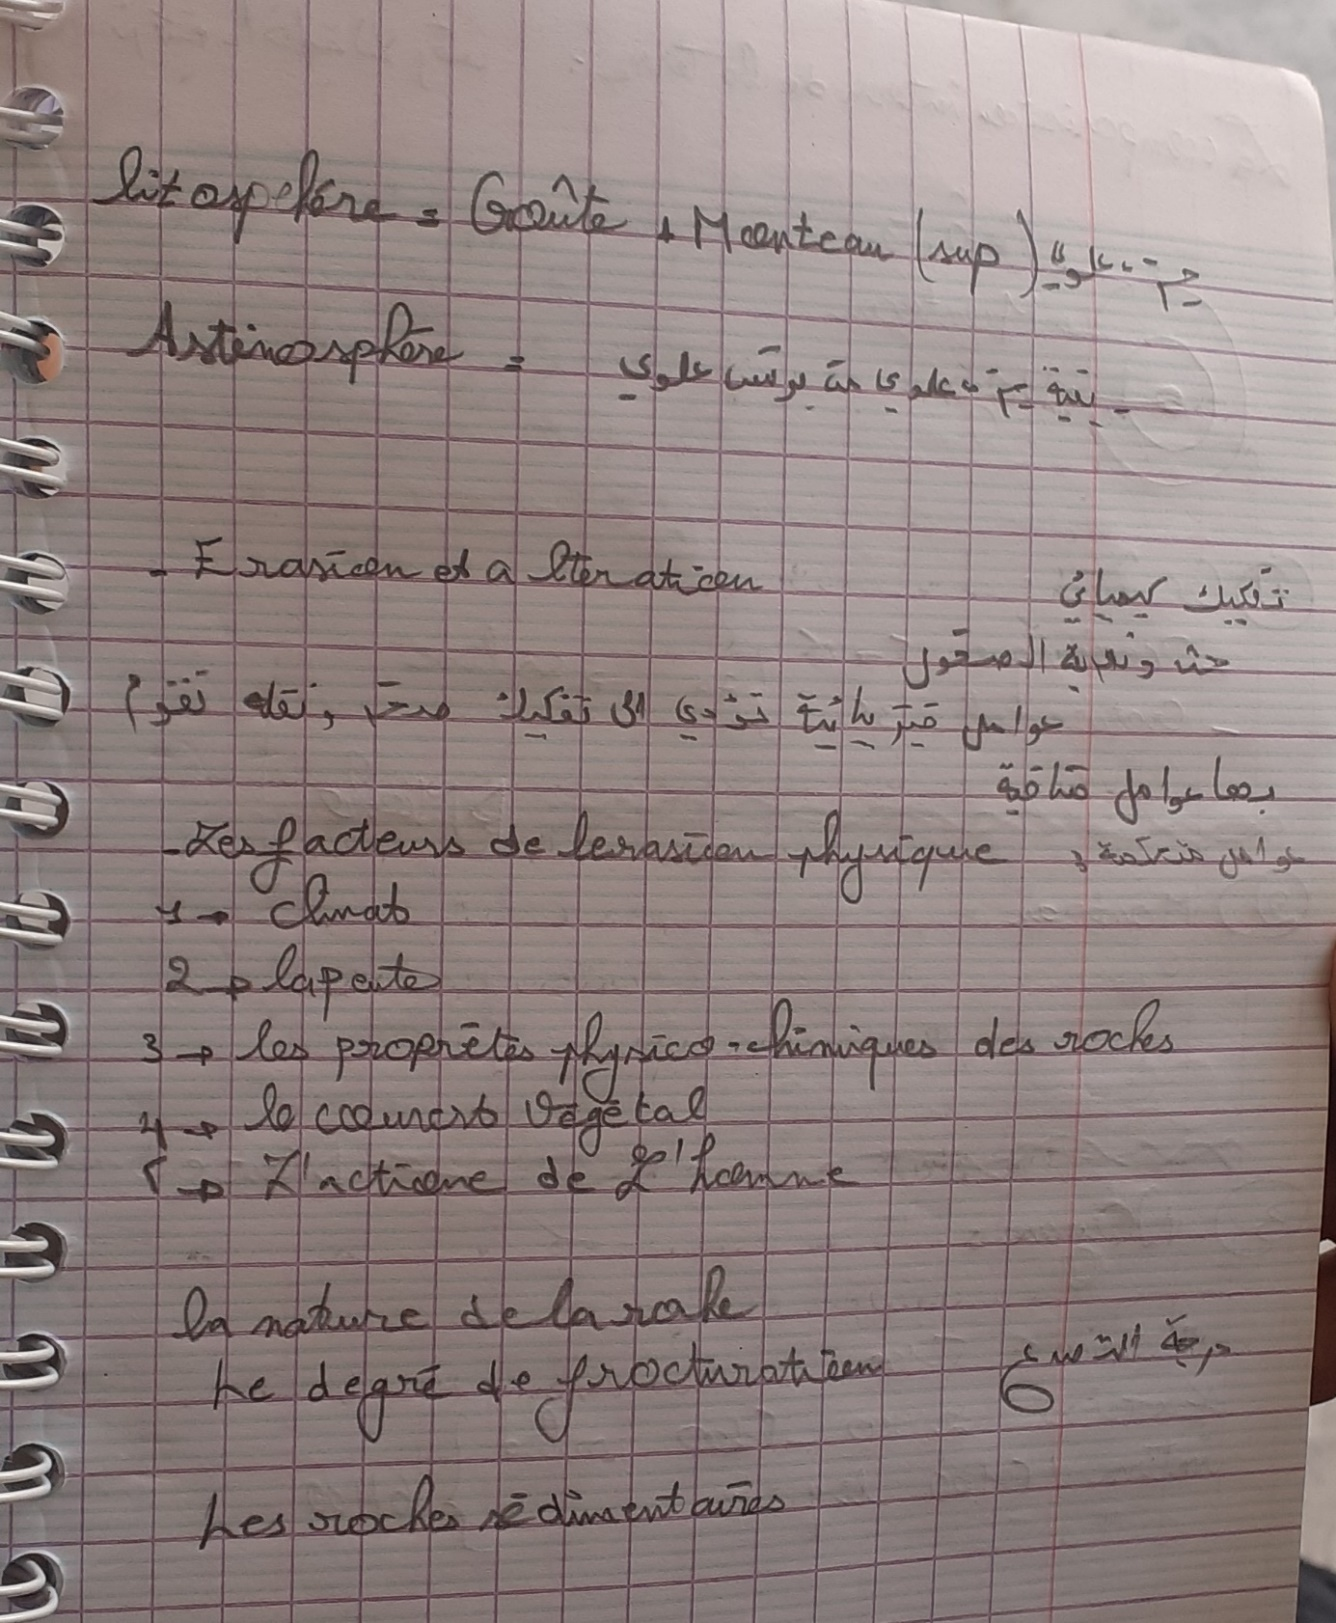 litospehére = Croûte + Manteau (sup) جزء علوي
Asténosphère = بقية جزء علوي
- Erasion et alteration تفكيك كيميائي
حث وتعرية الصخور
عوامل فيزيائية تؤدي الى تفكيك صخر ونقله تقوم
بهما عوامل مناخية
- Les facteurs de lerasion physique عوامل متحكمة
1 → climat
2 → la pente
3 → les proprétés physico-chimiques des roches
4 → le couvert végétal
5 → L'actione de l'homme
la nature de la roche
Le degré de fracturation درجة التصدع
Les roches sédimentaires